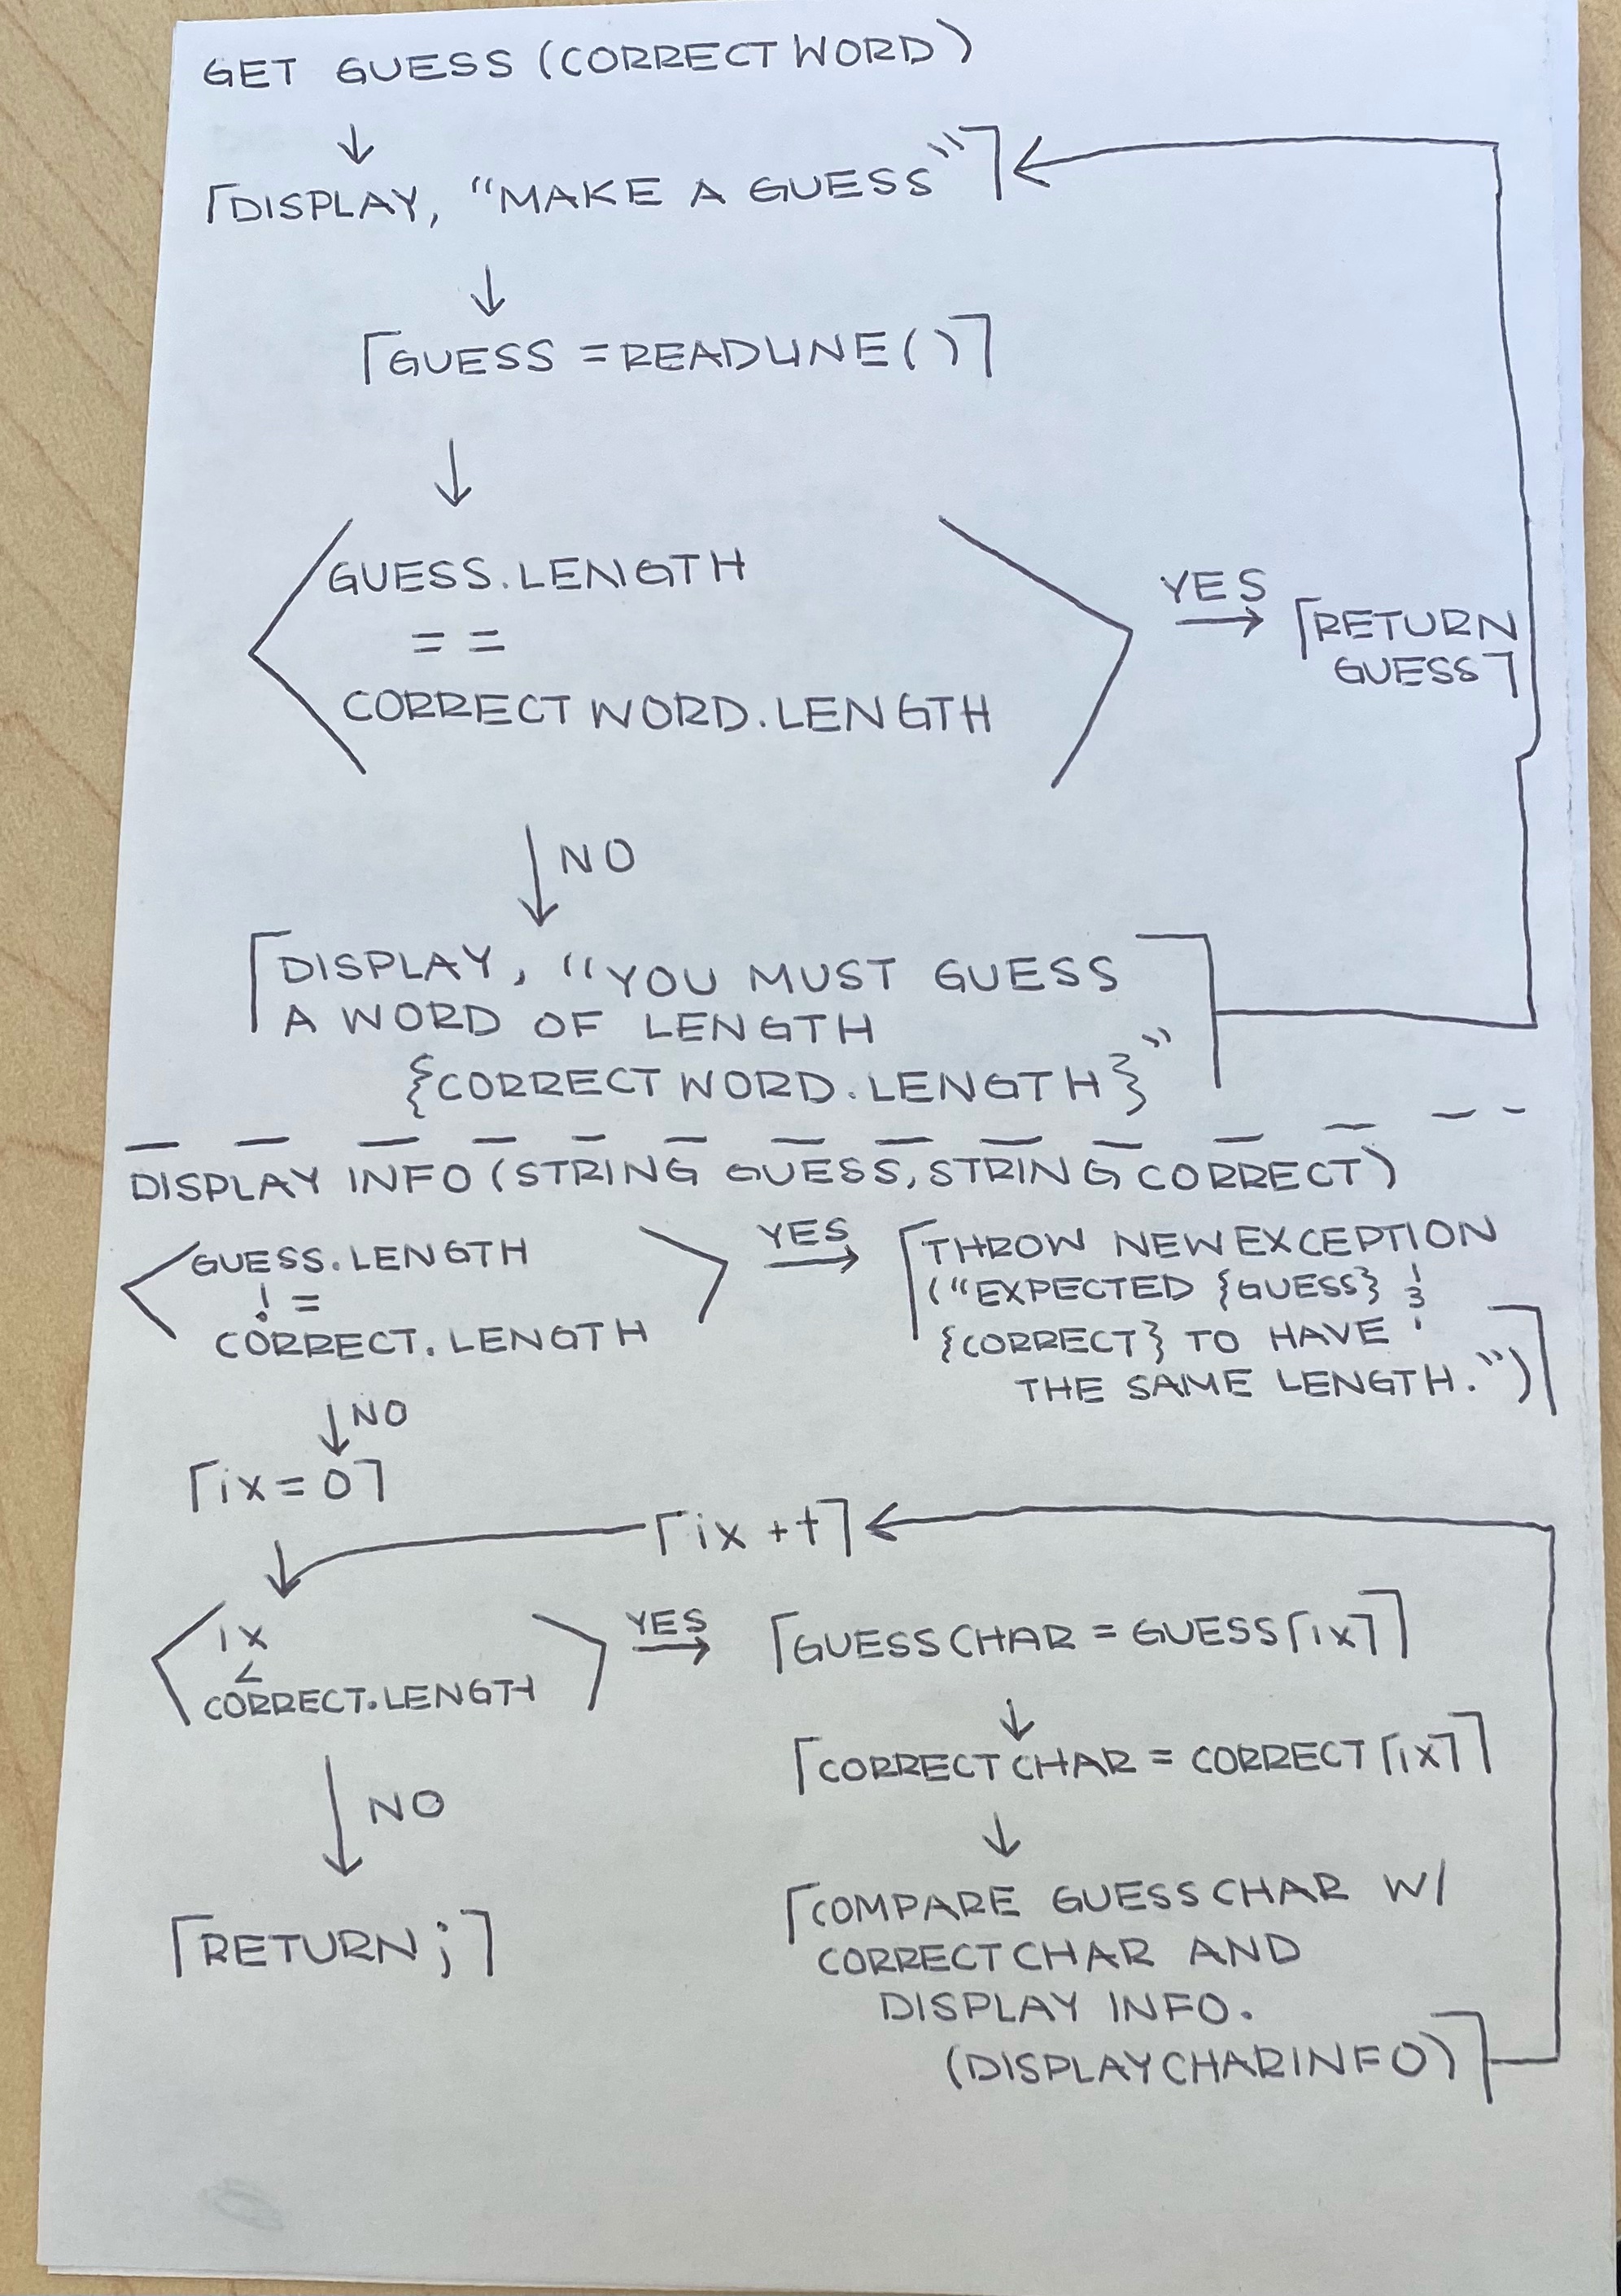 GET GUESS (CORRECT WORD)
DISPLAY, "MAKE A GUESS"
GUESS = READLINE()
GUESS.LENGTH
==
CORRECT WORD.LENGTH
YES
RETURN
GUESS
NO
DISPLAY, "YOU MUST GUESS
A WORD OF LENGTH
{CORRECT WORD.LENGTH}"
DISPLAY INFO (STRING GUESS, STRING CORRECT)
GUESS.LENGTH
!=
CORRECT.LENGTH
YES
THROW NEW EXCEPTION
("EXPECTED {GUESS} &
{CORRECT} TO HAVE
THE SAME LENGTH.")
NO
ix = 0
ix ++
ix
<
CORRECT.LENGTH
YES
GUESS CHAR = GUESS[ix]
CORRECT CHAR = CORRECT[ix]
COMPARE GUESS CHAR W/
CORRECT CHAR AND
DISPLAY INFO.
(DISPLAYCHARINFO)
NO
RETURN;